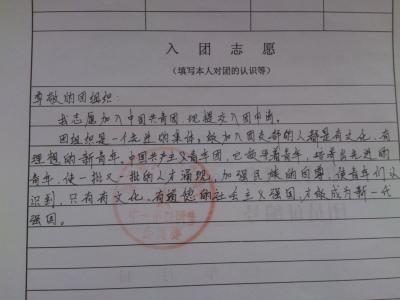 入团志愿
（填写本人对团的认识等）
尊敬的团组织：
我志愿加入中国共青团，现提交入团申出。
团组织是一个先进的集体，故加入团支部的人都是有文化、有
理想的新青年，中国共产主义青年团，它教导着青年，培养出先进的
青年，使一批又一批的人才涌现，加强民族的自尊，使青年们认
识到，只有有文化、有道德的社会主义强国，才能成为新一代
强国。